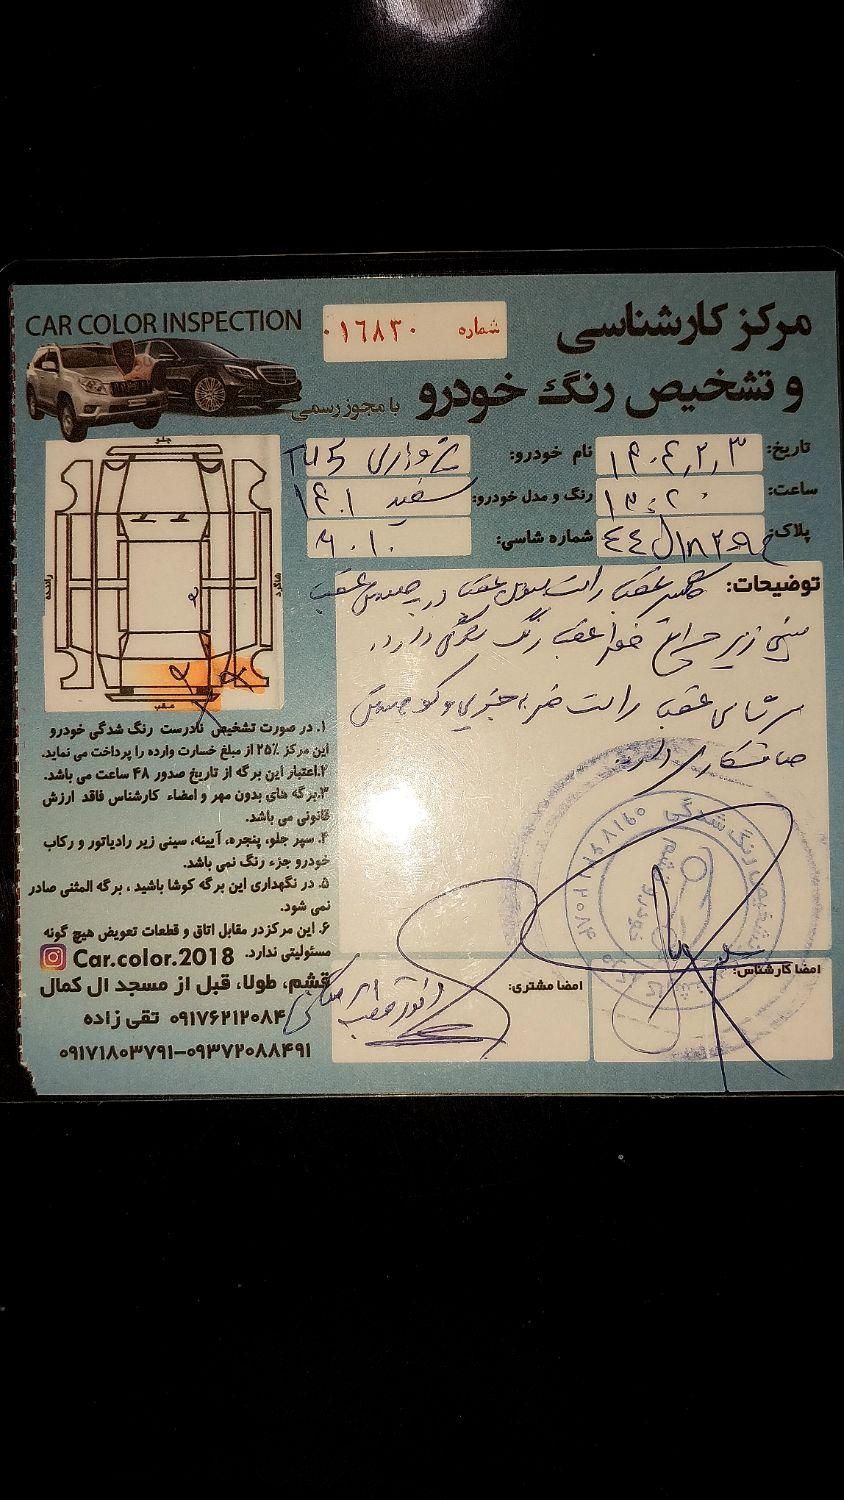 CAR COLOR INSPECTION
شماره ۰۱۶۸۳۰
مرکز کارشناسی
و تشخیص رنگ خودرو با مجوز رسمی
تاریخ: ۱۴۰۴,۲,۳
نام خودرو:
ساعت: ۱۳:۲۰
رنگ و مدل خودرو: سفید ۱۴۰۱
پلاک:
شماره شاسی: ۹۰۱۰
جلو
راننده
شاگرد
عقب
توضیحات: گلگیر عقب راست ستون عقب درب صندوق عقب
سینی زیر چراغ خطر عقب رنگ شدگی دارد.
سرشاسی عقب راست ضربه جزیی و کف صندوق
صافکاری
۱. در صورت تشخیص نادرست رنگ شدگی خودرو
این مرکز ۲۵٪ از مبلغ خسارت وارده را پرداخت می نماید.
۲.اعتبار این برگه از تاریخ صدور ۴۸ ساعت می باشد.
۳.برگه های بدون مهر و امضاء کارشناس فاقد ارزش
قانونی می باشد.
۴. سپر جلو، پنجره، آیینه، سینی زیر رادیاتور و رکاب
خودرو جزء رنگ نمی باشد.
۵. در نگهداری این برگه کوشا باشید ، برگه المثنی صادر
نمی شود.
۶. این مرکزدر مقابل اتاق و قطعات تعویض هیچ گونه
مسئولیتی ندارد.
Car.color.2018
قشم، طولا، قبل از مسجد ال کمال
۰۹۱۷۶۲۱۲۰۸۴ تقی زاده
۰۹۱۷۱۸۰۳۷۹۱-۰۹۳۷۲۰۸۸۴۹۱
امضا مشتری:
امضا کارشناس: